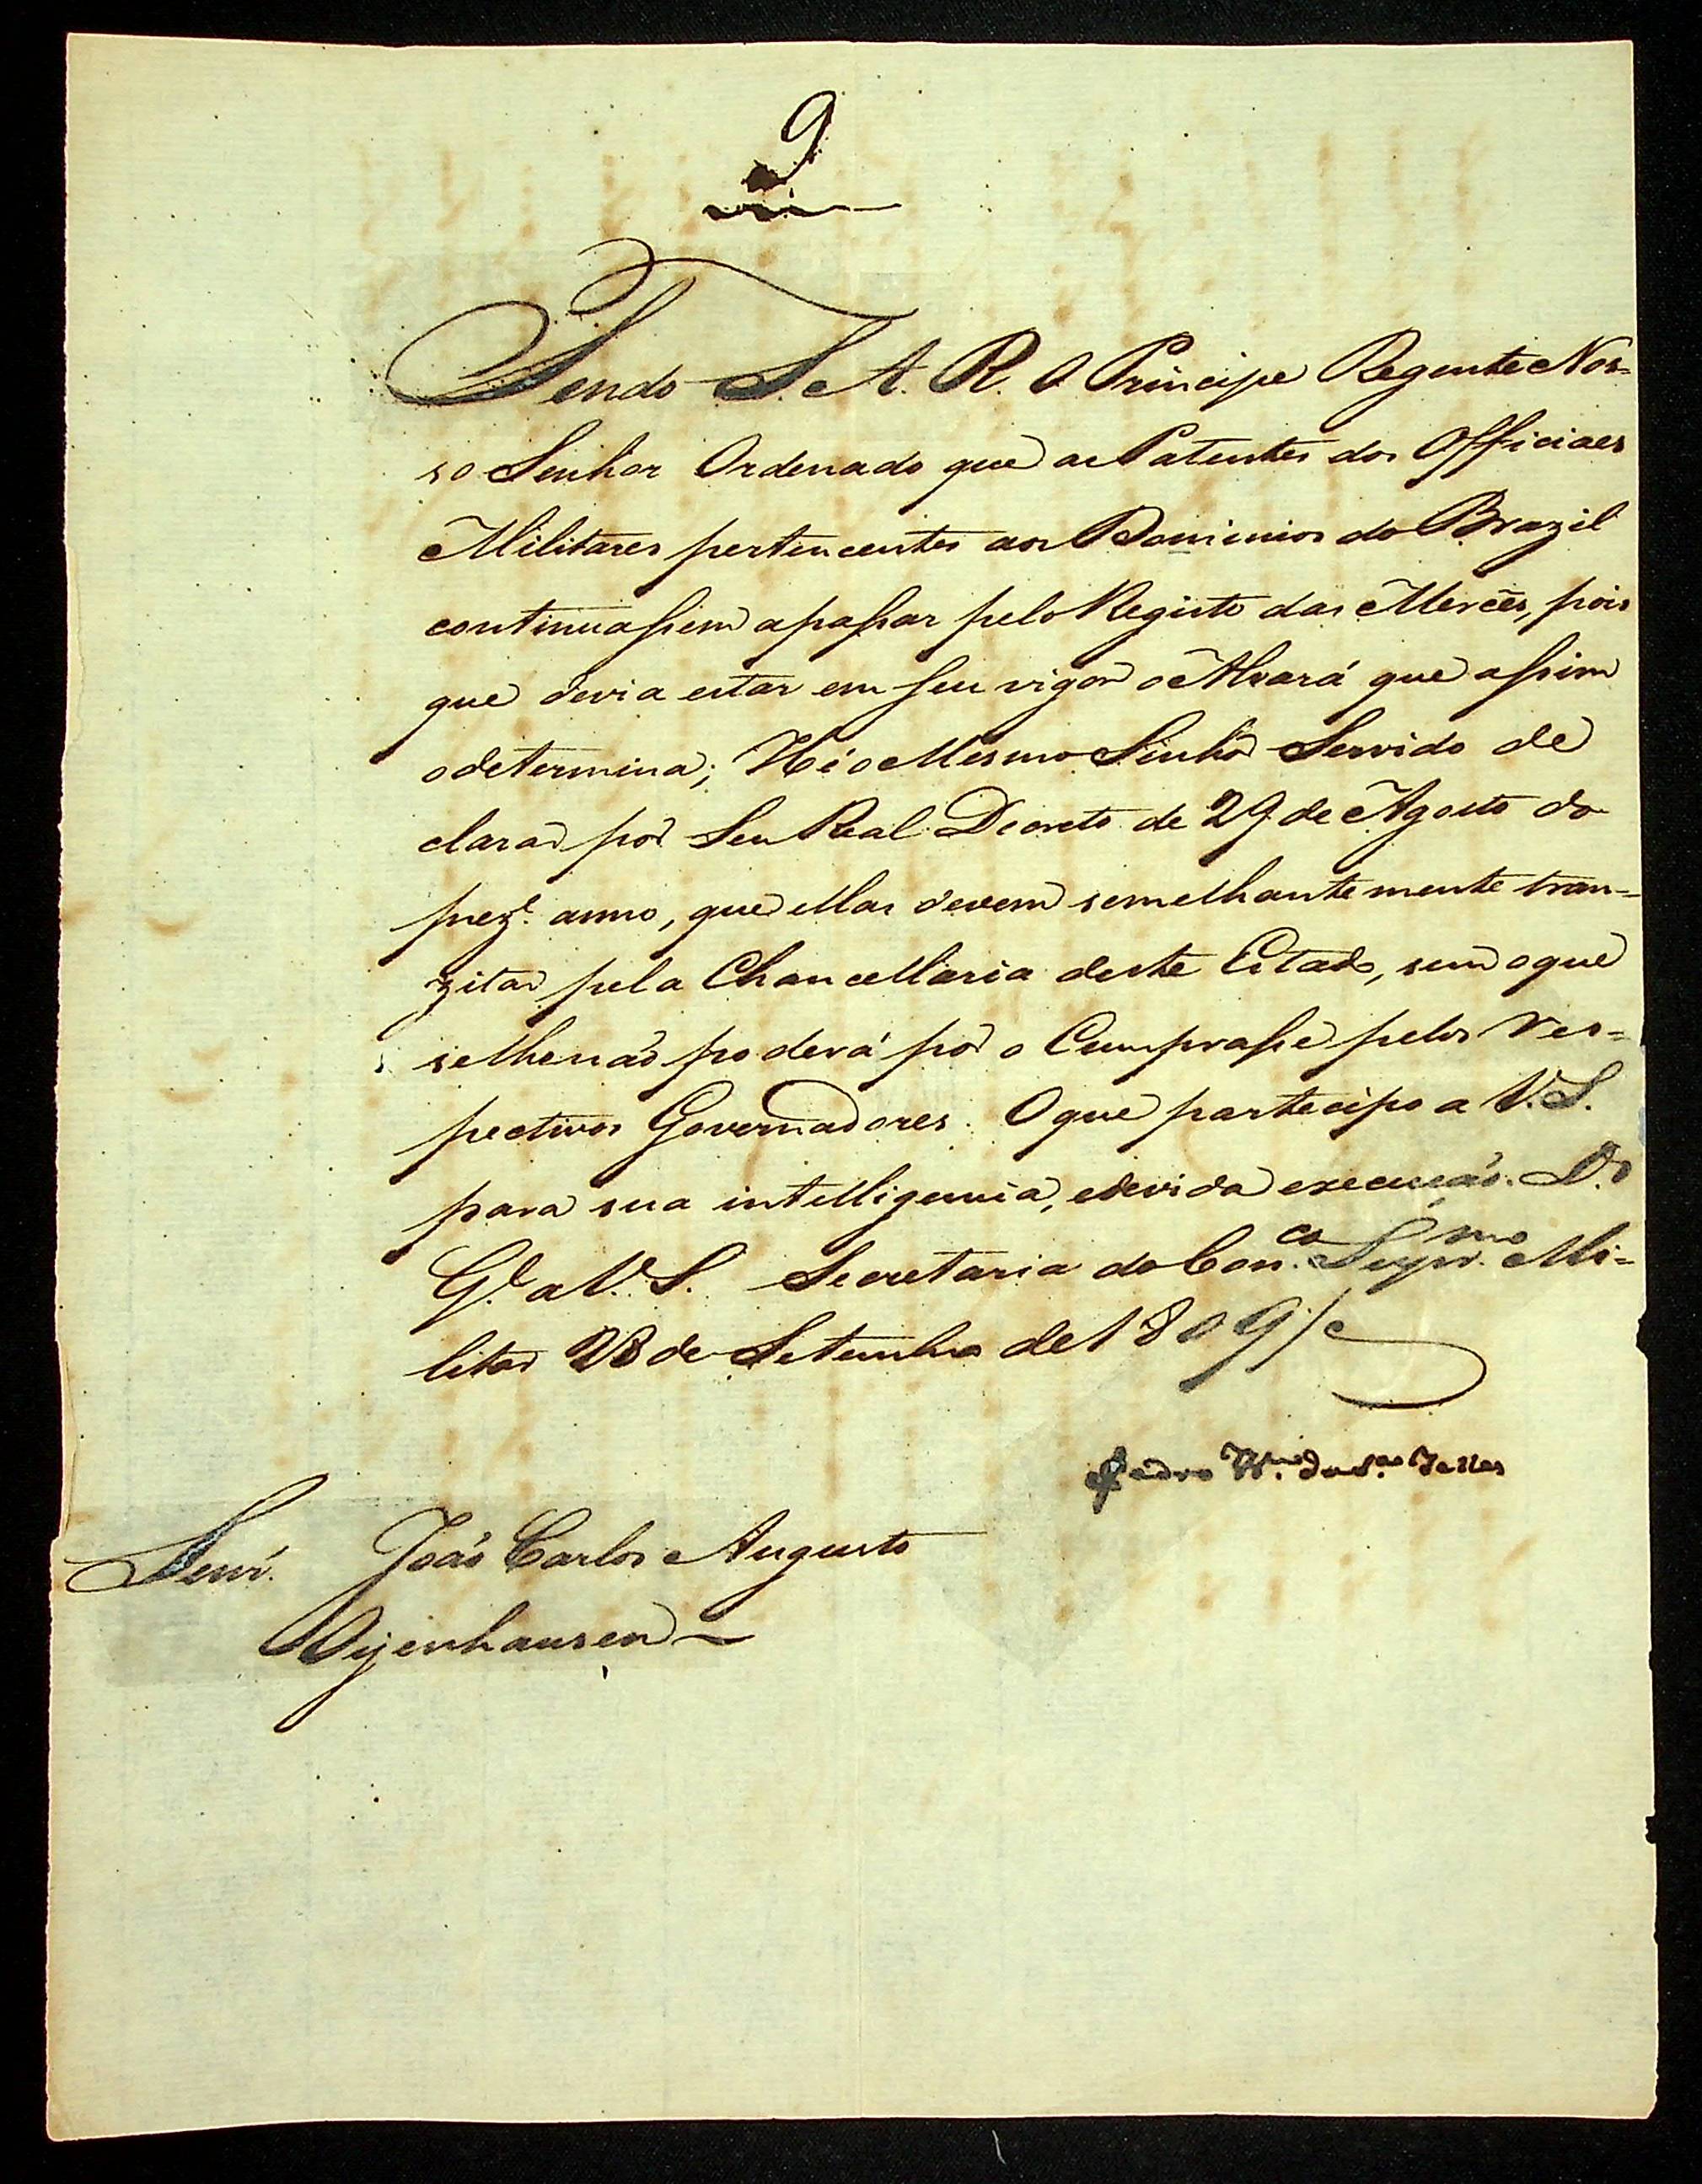 9
Tendo S. A. R. O Principe Regente Nos=
so Senhor Ordenado que as Patentes dos Officiaes
Militares pertencentes aos Dominios do Brazil
continuassem a passar pelo Registo das Mercês, pois
que devia estar em seu vigor o Alvará que assim
o determina; Hé o Mesmo Senhor Servido de
clarar por Seu Real Decreto de 29 de Agosto do
prez.e anno, que ellas devem semelhantemente tran=
zitar pela Chancellaria deste Estado, sem o que
se lhe não poderá pôr o Cumprasse pelos Res=
pectivos Governadores. O que partecipo a V. S.
para sua intelligencia, e devida execução. D.s
G.e a V. S. Secretaria do Con.co Supr.mo Mi=
litar 28 de Setembro de 1809
Pedro Telles
Senr. João Carlos Augusto
Oijenhausen